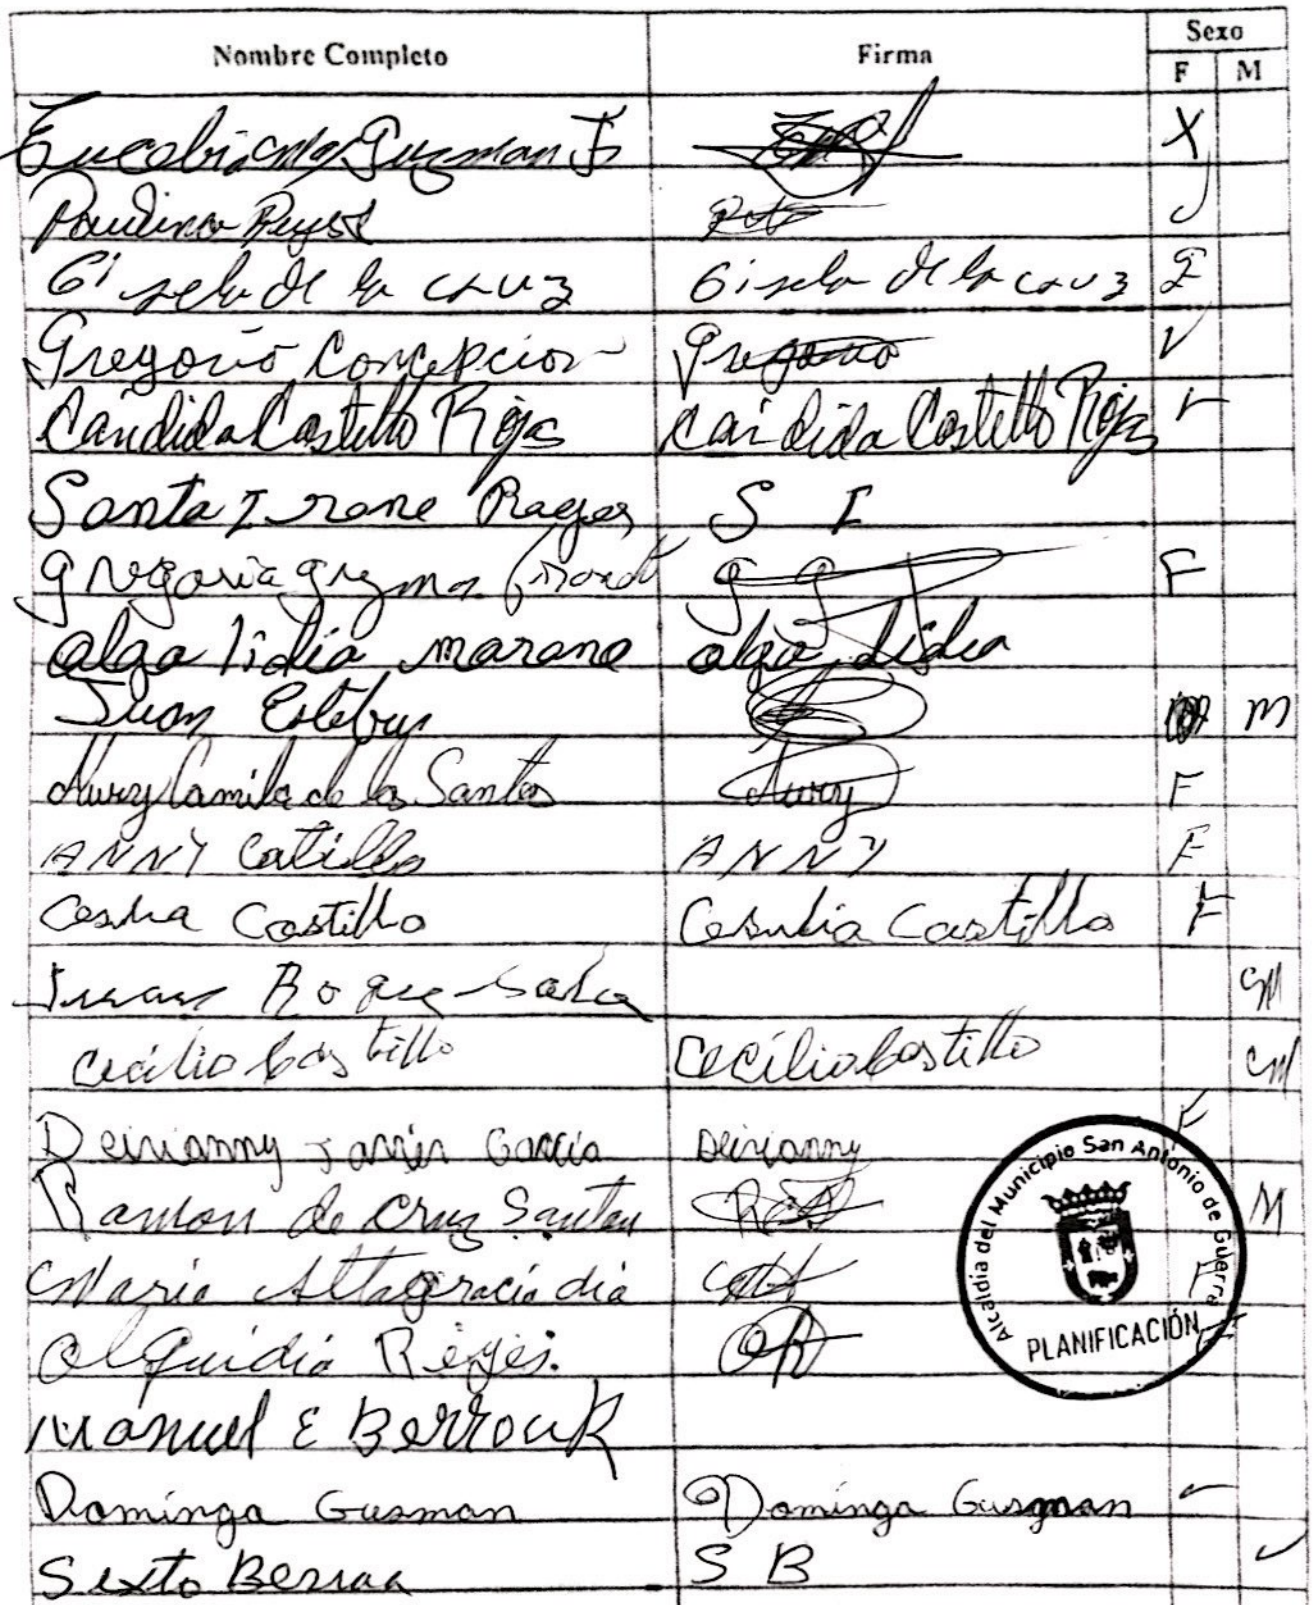 Nombre Completo Firma Sexo
F M
Guzman F X
Paulina Reyes
Gisela de la cruz Gisela de la cruz F
Gregorio Concepcion Gregorio
Candida Castillo Rojas Candida Castillo Rojas
Santa Irane Rayes S I
gregoria guzman g g F
alga lidia marano alga lidia
Juan Esteban M
Nury Camila de los Santos Nury F
ANNY Catillo ANNY F
Castillo Castillo F
Roque M
Cecilio Castillo Cecilio Castillo M
Deirianny Javier Garcia Deirianny F
Ramon de Cruz Santan M
Maria Altagracia dia F
Olquidia Reyes. OR F
Manuel E Berrouk
Dominga Gusman Dominga Gusman
Sexto Berroa S B
Alcaldía del Municipio San Antonio de Guerra
PLANIFICACIÓN